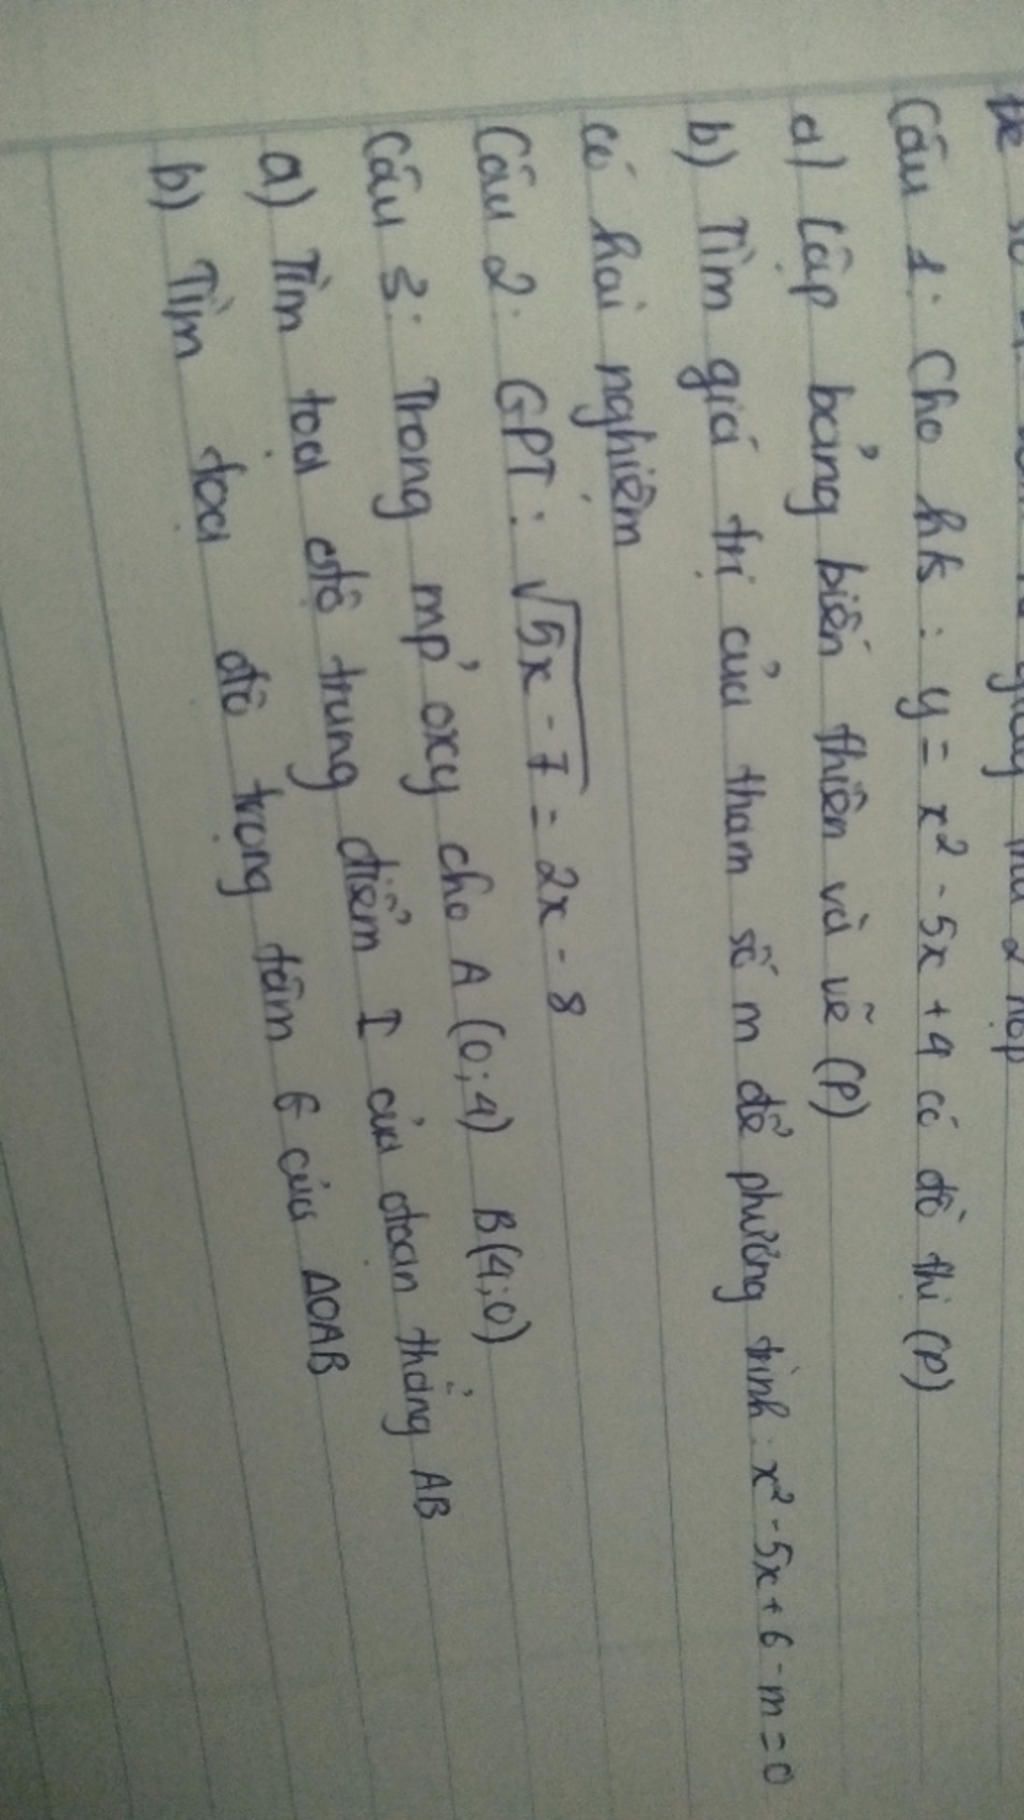 Câu 1: Cho hs: y = x² - 5x + 4 có đồ thị (P)
a) Lập bảng biến thiên và vẽ (P)
b) Tìm giá trị của tham số m để phương trình: x² - 5x + 6 - m = 0
có hai nghiệm
Câu 2: GPT: √5x - 7 = 2x - 8
Câu 3: Trong mp' oxy cho A (0; 4) B(4; 0)
a) Tìm toạ độ trung điểm I của đoạn thẳng AB
b) Tìm toạ độ trọng tâm G của ΔOAB